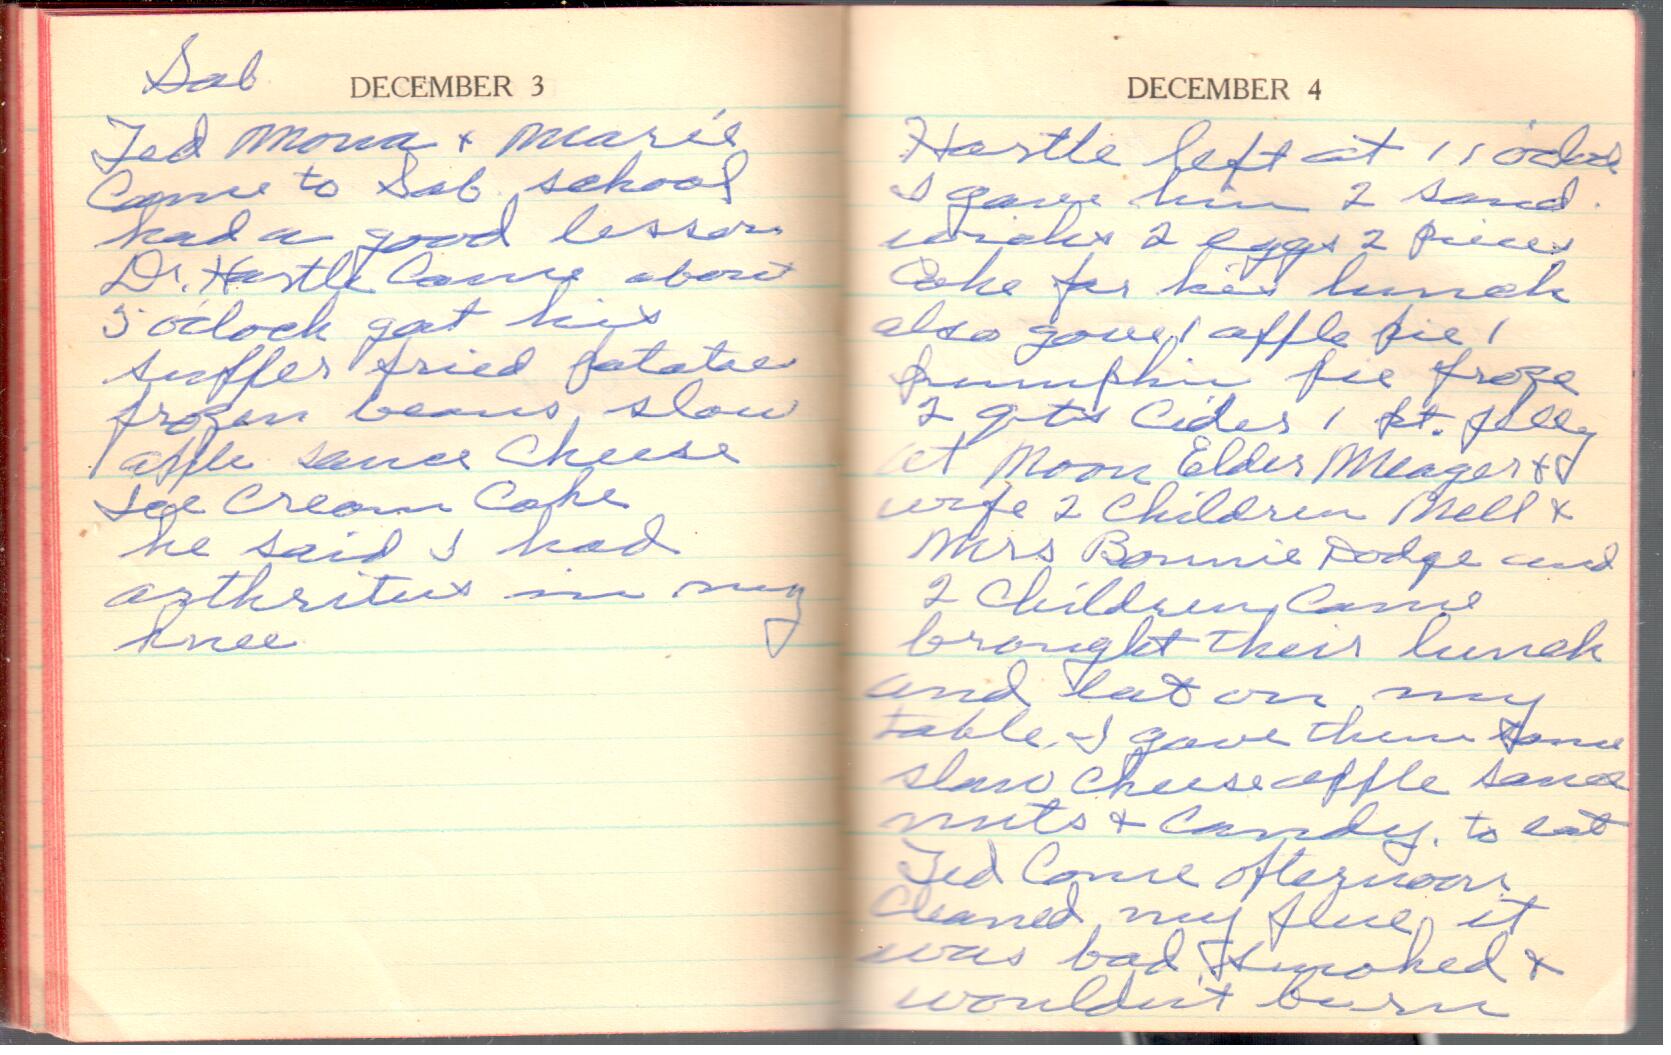 Sab
DECEMBER 3
Ted Mona & Marie
Came to Sab. school
had a good lesson
Dr. Hartle Came about
5 o'clock got his
supper fried potatoe
frozen beans, slaw
apple sauce Cheese
Ice Cream Cake
he said I had
arthritus in my
knee
DECEMBER 4
Hartle left at 11 o'clock
I gave him 2 sand.
wichs 2 eggs 2 pieces
Cake for his lunch
also gave 1 apple pie 1
pumpkin pie froze
2 qts Cider 1 pt. jelly
at Moon Elder Meager &
wife 2 Children Mell &
Mrs Bonnie Dodge and
2 Children Came
brought their lunch
and eat on my
table. I gave them some
slaw cheese apple sauce
nuts & Candy. to eat
Ted Come afternoon
Cleaned my flue, it
was bad, smoked &
wouldn't burn